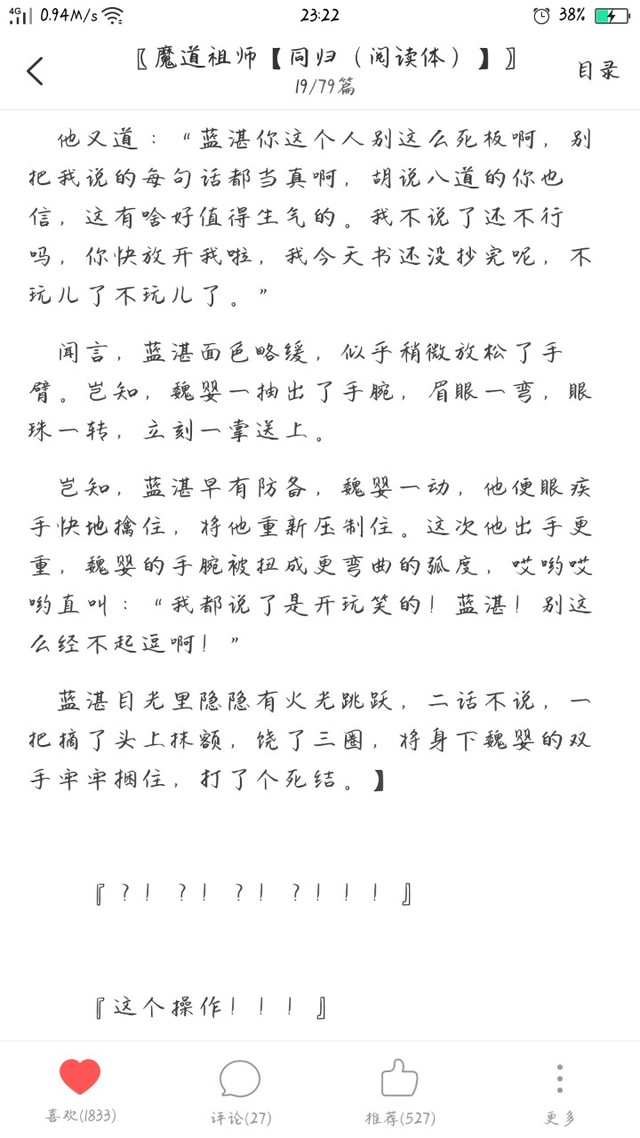 4G 0.94M/s 23:22 38%
〖魔道祖师【同归（阅读体）】〗
19/79篇
目录
他又道：“蓝湛你这个人别这么死板啊，别
把我说的每句话都当真啊，胡说八道的你也
信，这有啥好值得生气的。我不说了还不行
吗，你快放开我啦，我今天书还没抄完呢，不
玩儿了不玩儿了。”
闻言，蓝湛面色略缓，似乎稍微放松了手
臂。岂知，魏婴一抽出了手腕，眉眼一弯，眼
珠一转，立刻一掌送上。
岂知，蓝湛早有防备，魏婴一动，他便眼疾
手快地擒住，将他重新压制住。这次他出手更
重，魏婴的手腕被扭成更弯曲的弧度，哎哟哎
哟直叫：“我都说了是开玩笑的！蓝湛！别这
么经不起逗啊！”
蓝湛目光里隐隐有火光跳跃，二话不说，一
把摘了头上抹额，饶了三圈，将身下魏婴的双
手牢牢捆住，打了个死结。】
『？！？！？！？！！！』
『这个操作！！！』
喜欢(1833) 评论(27) 推荐(527) 更多